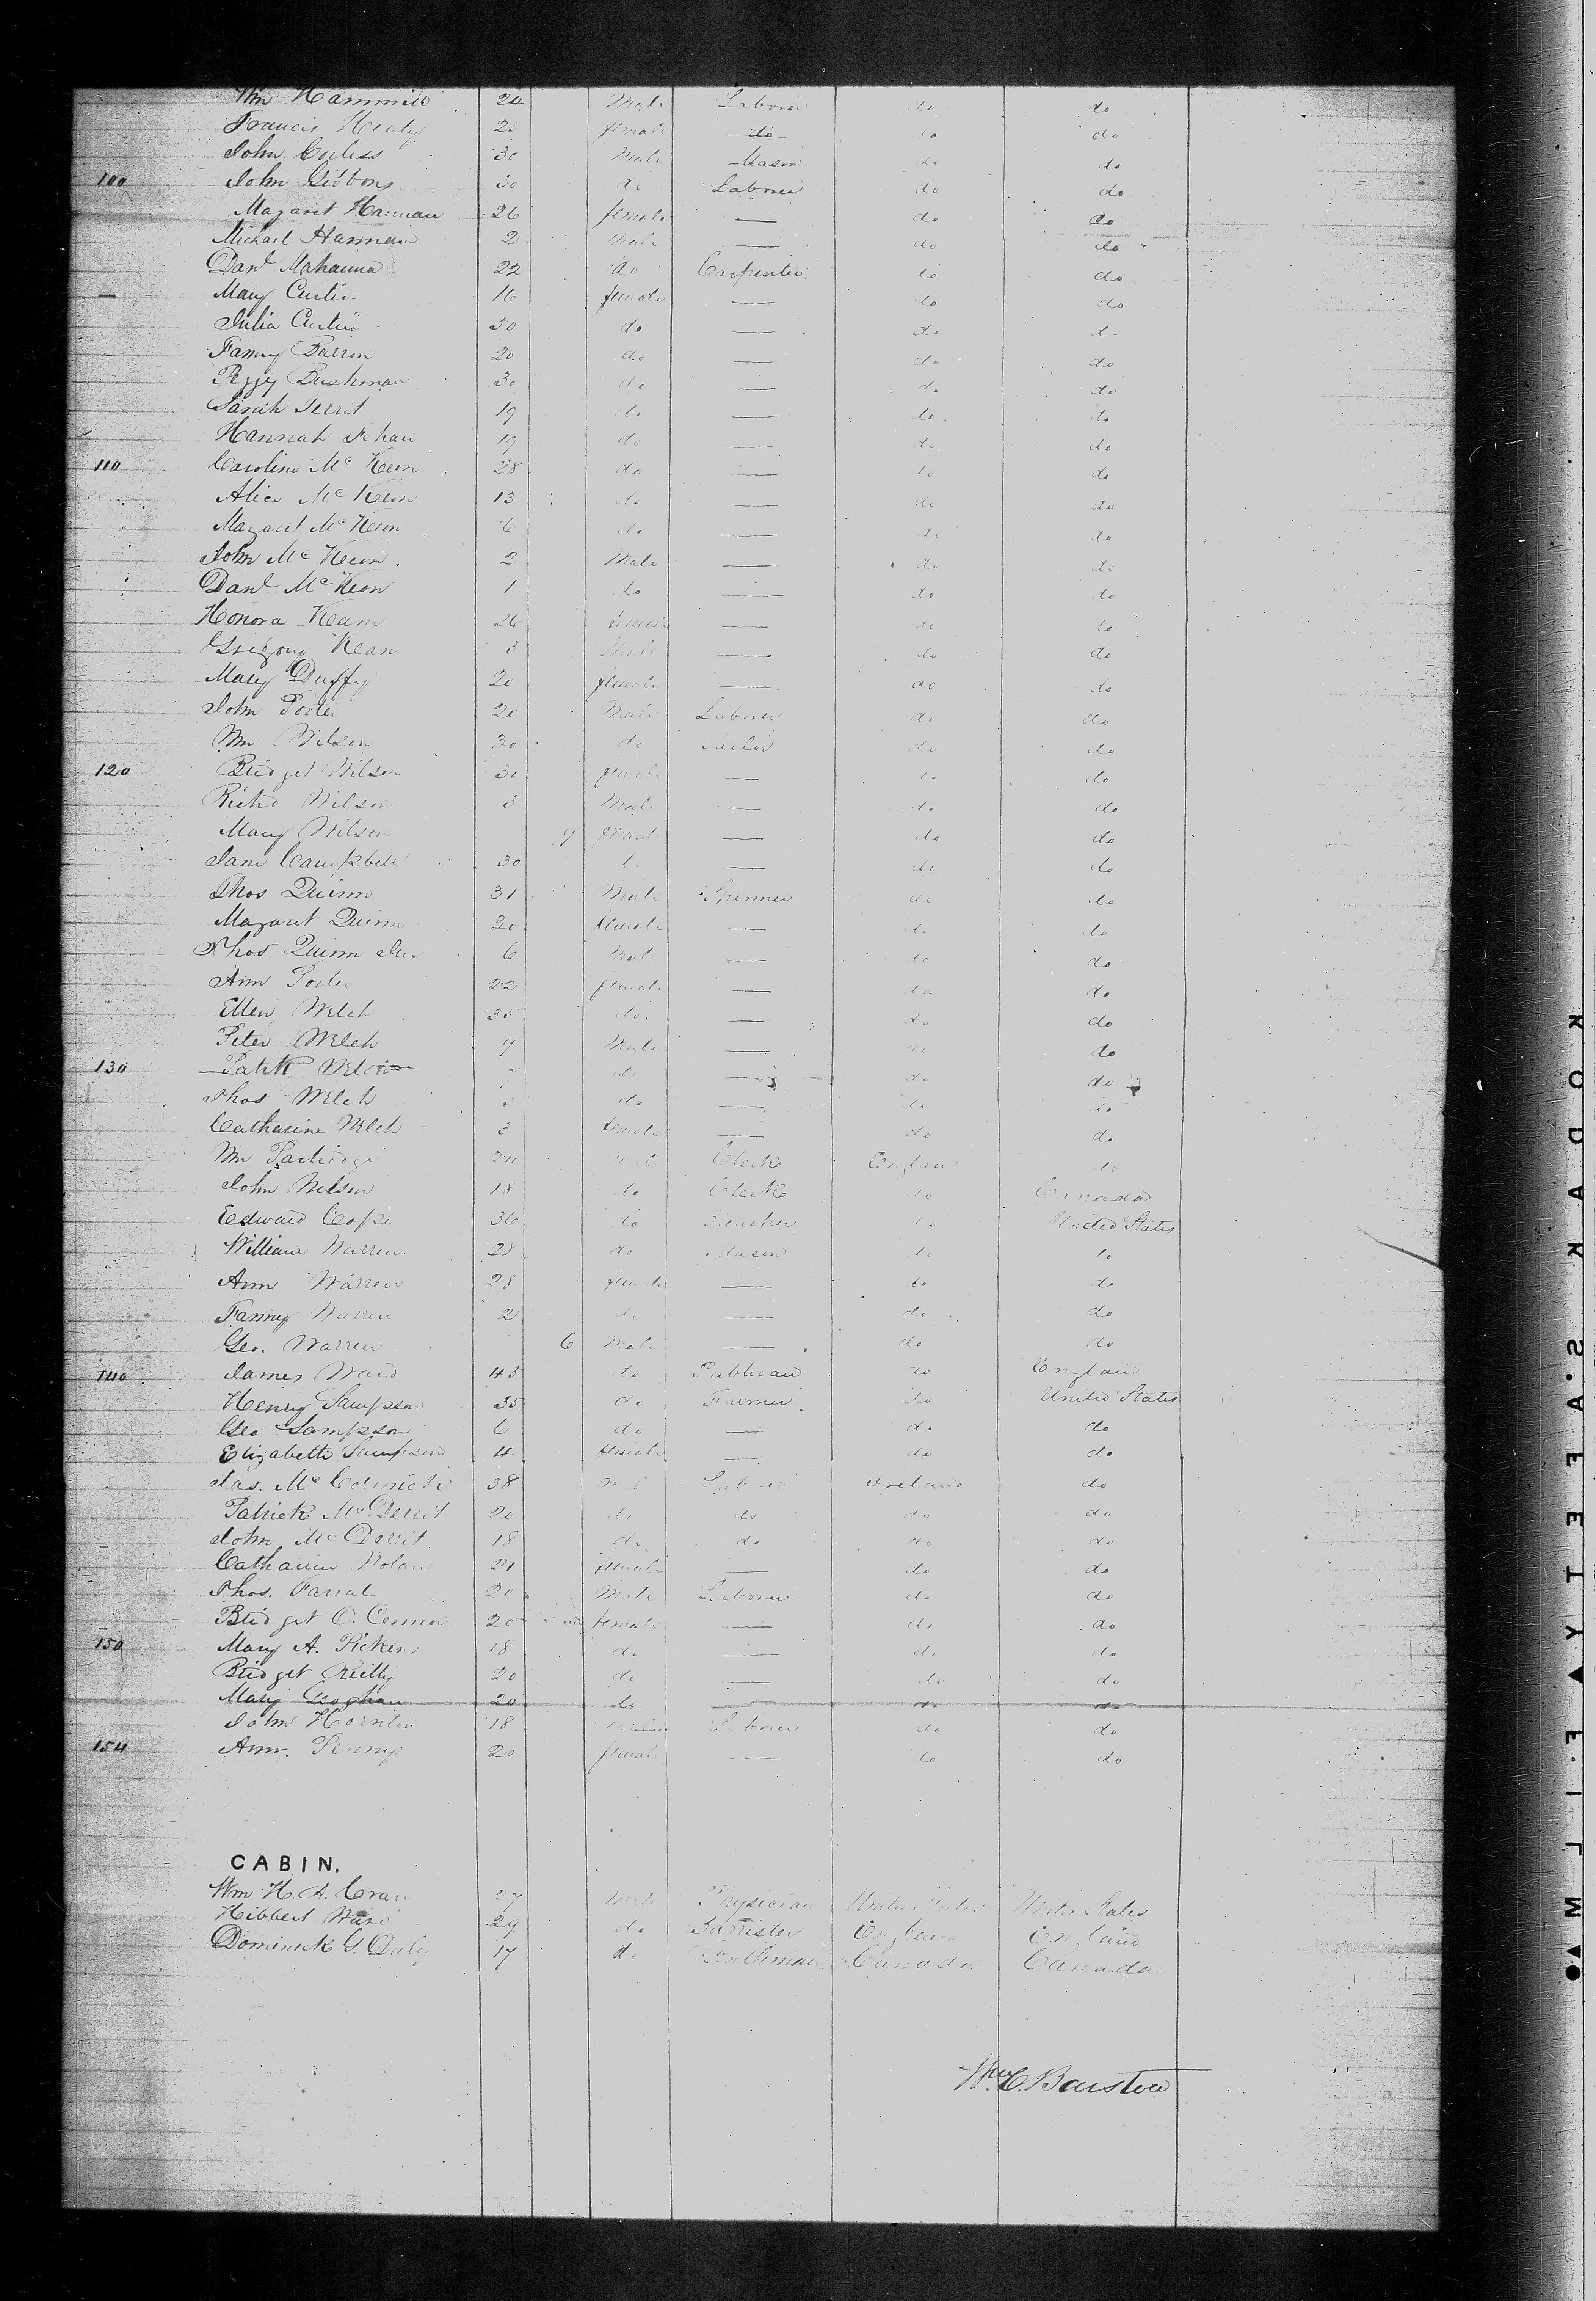 Wm Hammill 24 Male Laborer do do
Francis Healy 20 female do do do
John Corless 30 Male Mason do do
100 John Gibbons 30 do Laborer do do
Magaret Hannan 26 female — do do
Michael Hannan 2 Male — do do
Danl Mahanna 22 do Carpenter do do
— Mary Curtin 16 female — do do
Julia Curtin 30 do — do do
Fanny Barron 20 do — do do
Peggy Bushman 30 do — do do
Sarah 19 do — do do
Hannah 19 do — do do
110 Caroline Mc Keon 28 do — do do
Alice Mc Keon 13 do — do do
Magaret Mc Keon 6 do — do do
John Mc Keon 2 Male — do do
Danl Mc Keon 1 do — do do
Honora Keane 26 female — do do
Gregory Keane 3 Male — do do
Mary Duffy 20 female — do do
John Porter 20 Male Laborer do do
Wm Wilson 30 do do do
120 Bridget Wilson 30 female — do do
Richd Wilson 3 Male — do do
Mary Wilson 9 female — do do
Jane Campbell 30 do — do do
Thos Quinn 31 Male Spinner do do
Magaret Quinn 30 female — do do
Thos Quinn Jur 6 Male — do do
Ann Porter 22 female — do do
Ellen Welch 35 do — do do
Peter Welch 9 Male — do do
130 Patk Welch 7 do — do do
Thos Welch do — do do
Catharine Welch 3 female — do do
Wm Partridge 24 Male Clerk England do
John Nelson 18 do Clerk do Canada
Edward Cope 36 do do United States
William Warren 28 do Mason do do
Ann Warren 28 female — do do
Fanny Warren 2 do — do do
Geo. Warren 6 Male — do do
140 James Ward 45 do Publican do England
Henry Sampson 35 do Farmer do United States
Geo Sampson 6 do — do do
Elizabeth Sampson 4 female — do do
Jas. Mc Cormick 38 Male Laborer Ireland do
Patrick Mc Derrit 20 do do do do
John Mc Derrit 18 do do do do
Catharine Nolan 21 female — do do
Thos. Farral 20 Male Laborer do do
Bridget O. Connor 20 female — do do
150 Mary A. Pickens 18 do — do do
Bridget Reilly 20 do — do do
Mary Croghan 20 do — do do
John Hornton 18 Laborer do do
154 Ann. Penny 20 female — do do
CABIN.
Wm H. A. Crane 27 Male Physician United States United States
Hibbert Ware 29 do Barrister England England
Dominick G. Daly 17 do Gentleman Canada Canada
Wm C. Barstow